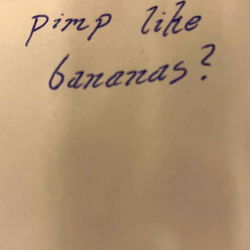 pimp like
bananas?